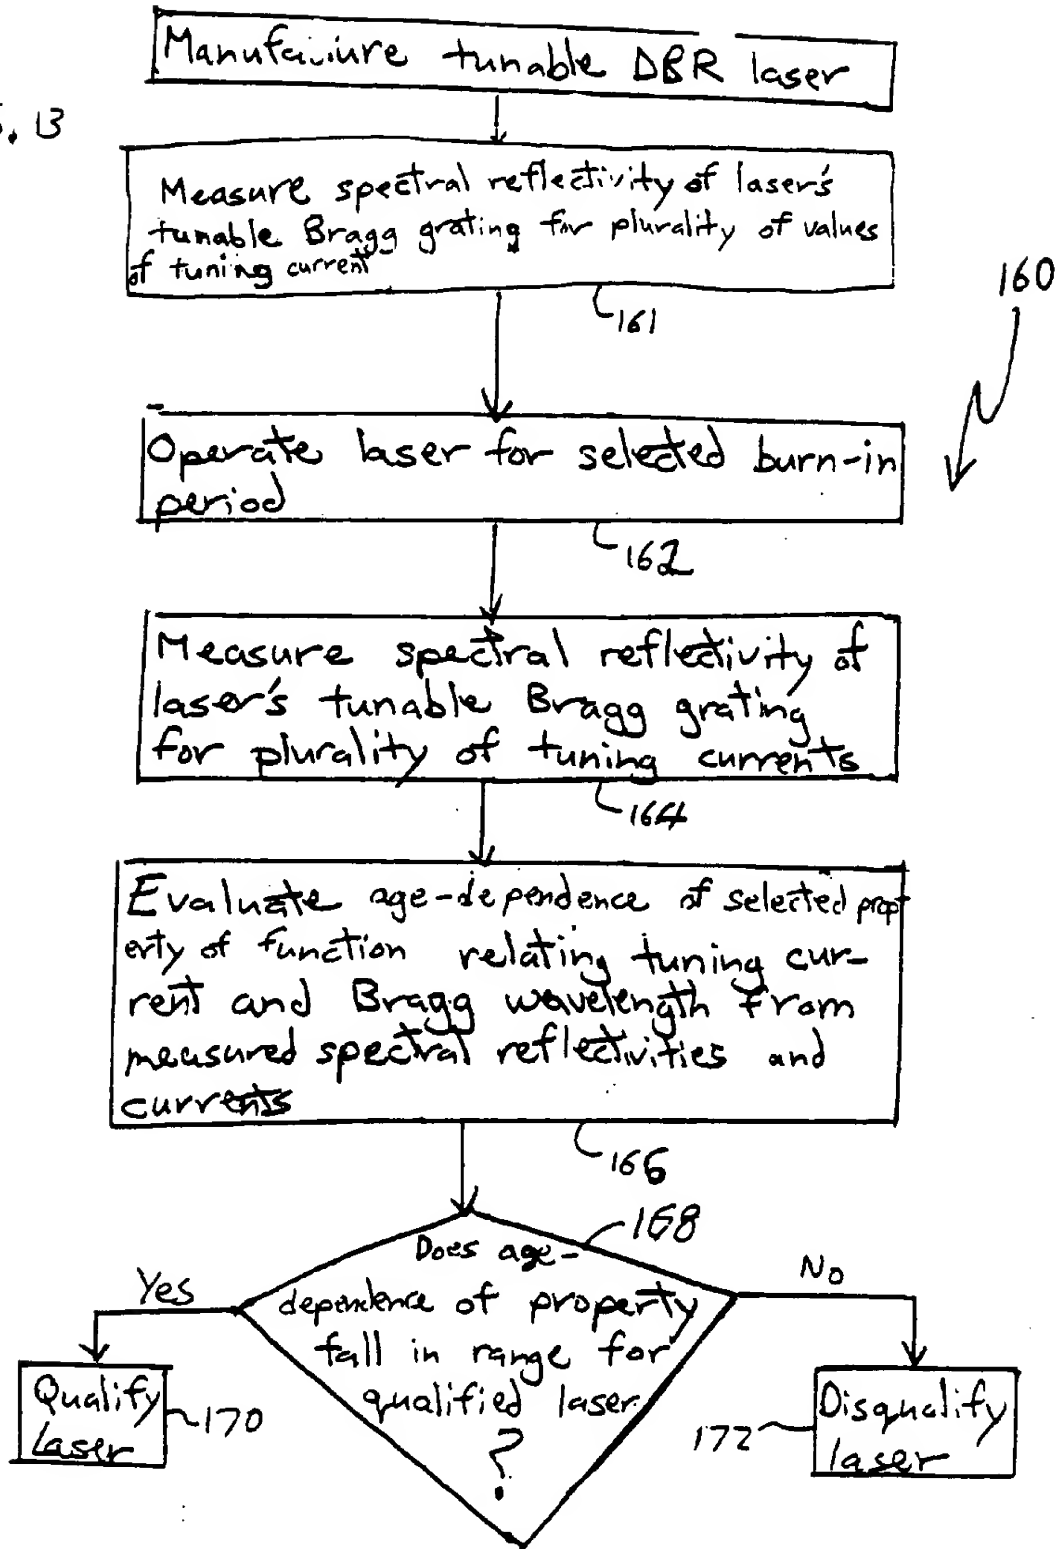 Manufacture tunable DBR laser
. 13
Measure spectral reflectivity of laser's
tunable Bragg grating for plurality of values
of tuning current
161
160
Operate laser for selected burn-in
period
162
Measure spectral reflectivity of
laser's tunable Bragg grating
for plurality of tuning currents
164
Evaluate age-dependence of selected prop-
erty of function relating tuning cur-
rent and Bragg wavelength from
measured spectral reflectivities and
currents
166
168
Does age-
dependence of property
fall in range for
qualified laser
?
Yes
No
Qualify
laser
170
172
Disqualify
laser